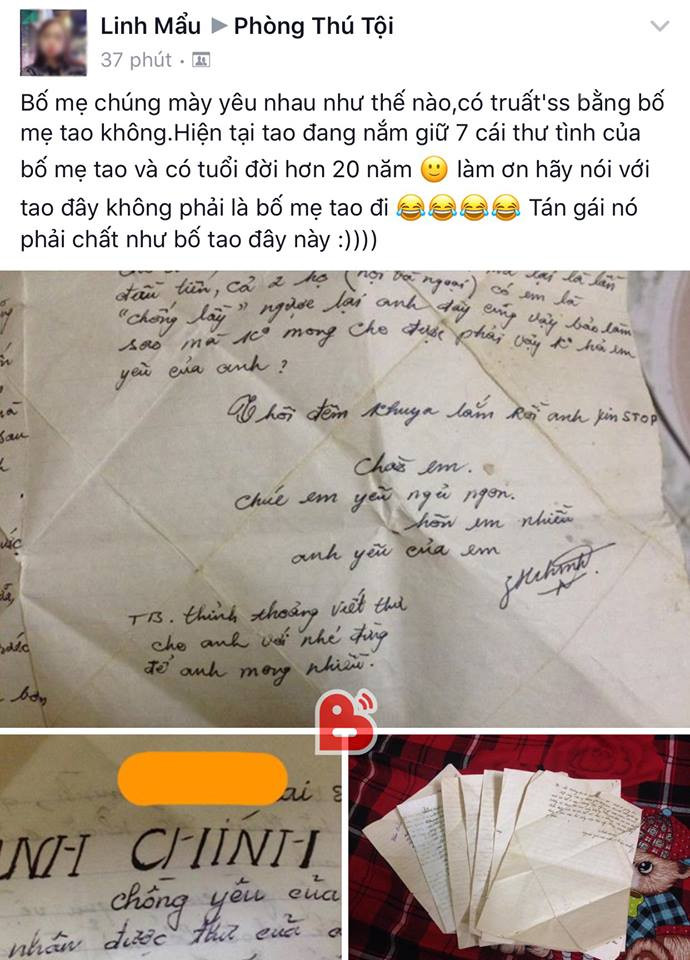 Linh Mẩu ▶ Phòng Thú Tội
37 phút ·
Bố mẹ chúng mày yêu nhau như thế nào,có truất'ss bằng bố
mẹ tao không.Hiện tại tao đang nắm giữ 7 cái thư tình của
bố mẹ tao và có tuổi đời hơn 20 năm 🙂 làm ơn hãy nói với
tao đây không phải là bố mẹ tao đi 😂😂😂😂 Tán gái nó
phải chất như bố tao đây này :))))
lại là lần
đầu tiên, cả 2 họ (nội và ngoại) có em là
"chống lầy" ngược lại anh đây cũng vậy bảo làm
sao mà ko mong cho được phải vậy ko hả em
yêu của anh ?
Thôi đêm khuya lắm rồi anh xin STOP
Chào em.
chúc em yêu ngủ ngon.
hôn em nhiều
anh yêu của em
TB. thỉnh thoảng viết thư
cho anh với nhé đừng
để anh mong nhiều.
sau
bơn
ai
NH CHÍNH
chồng yêu của
nhân được thư của
B